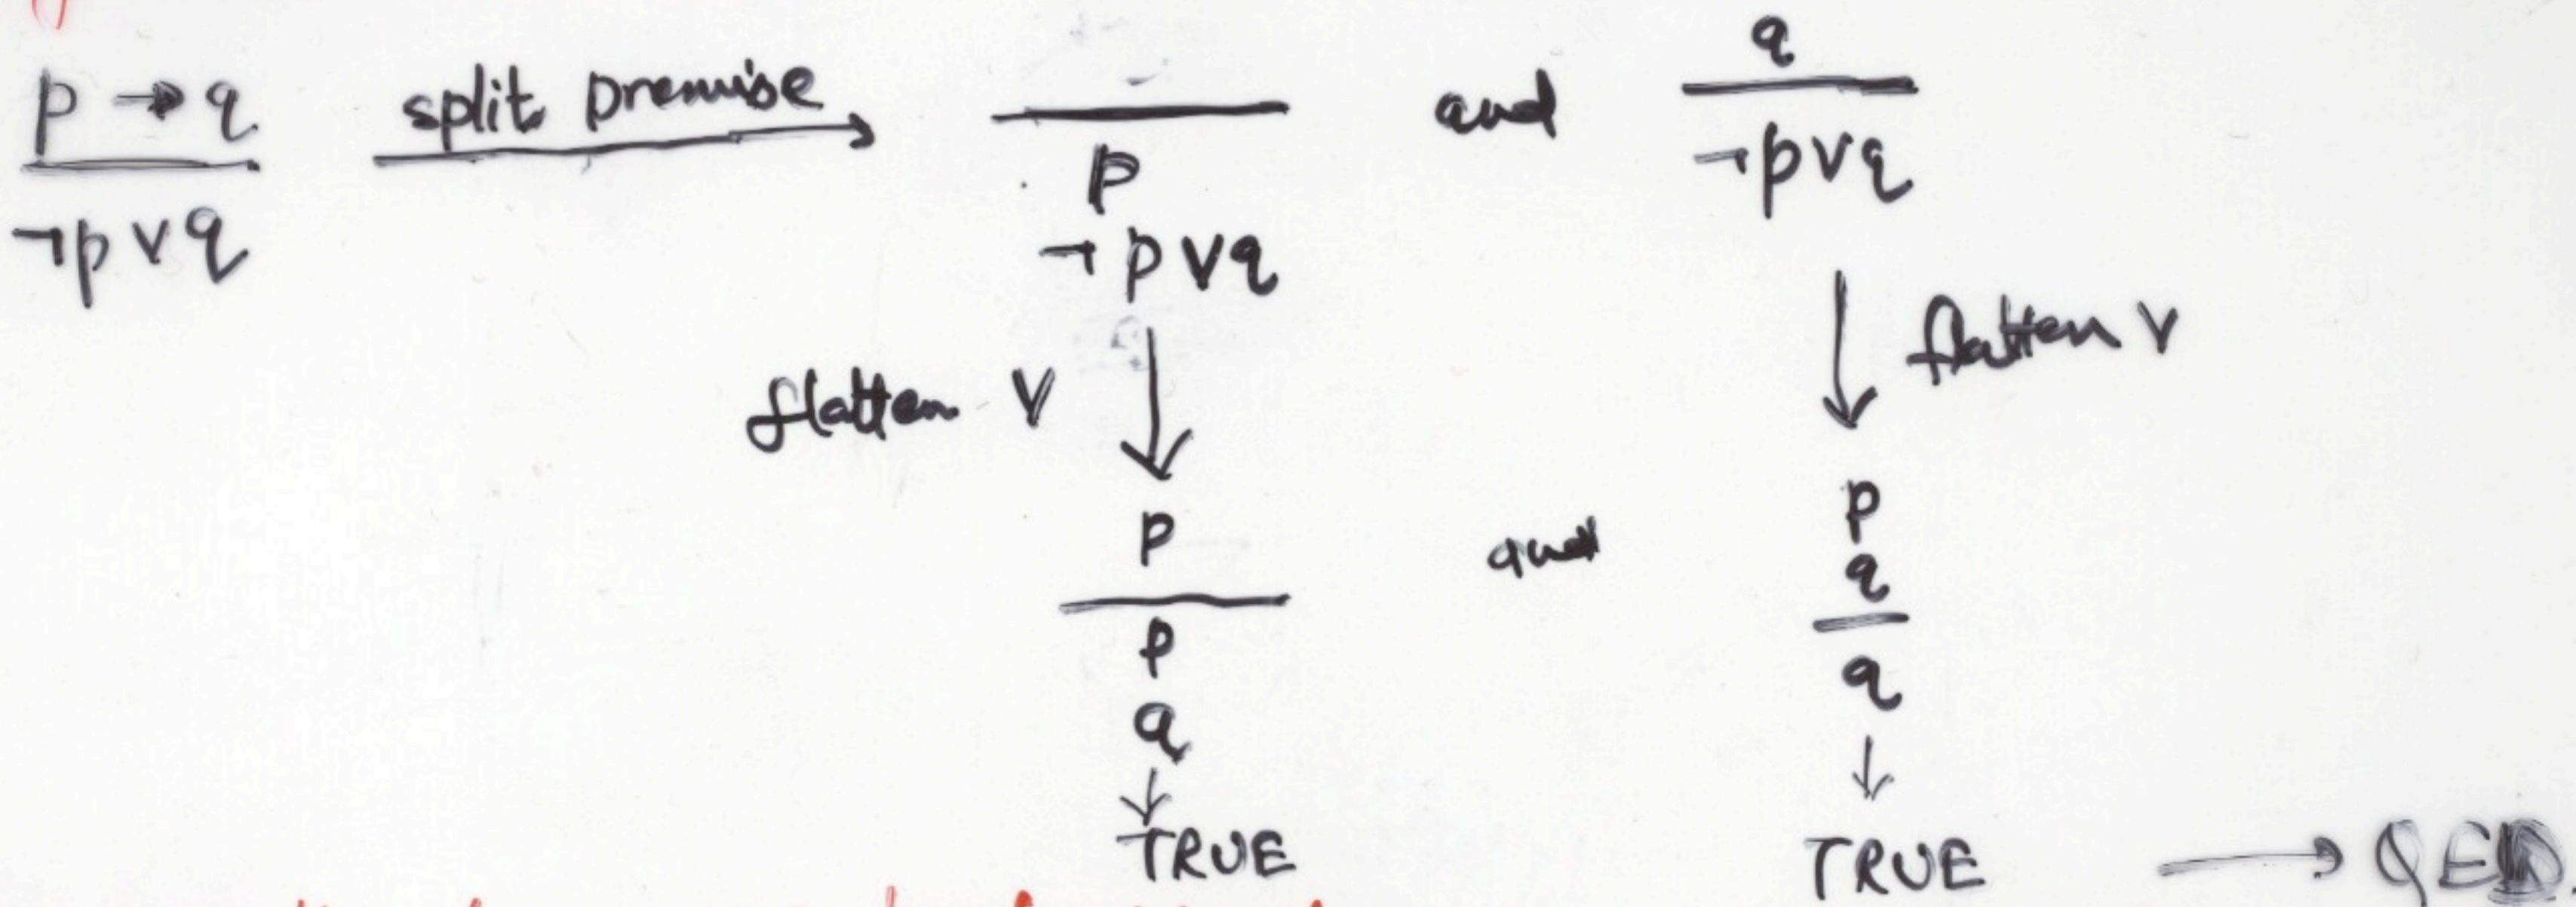 p → q split premise
¬p ∨ q
p
¬p ∨ q
and
q
¬p ∨ q
flatten ∨
flatten ∨
p
p
q
and
p
q
q
↓
TRUE
↓
TRUE → QED.